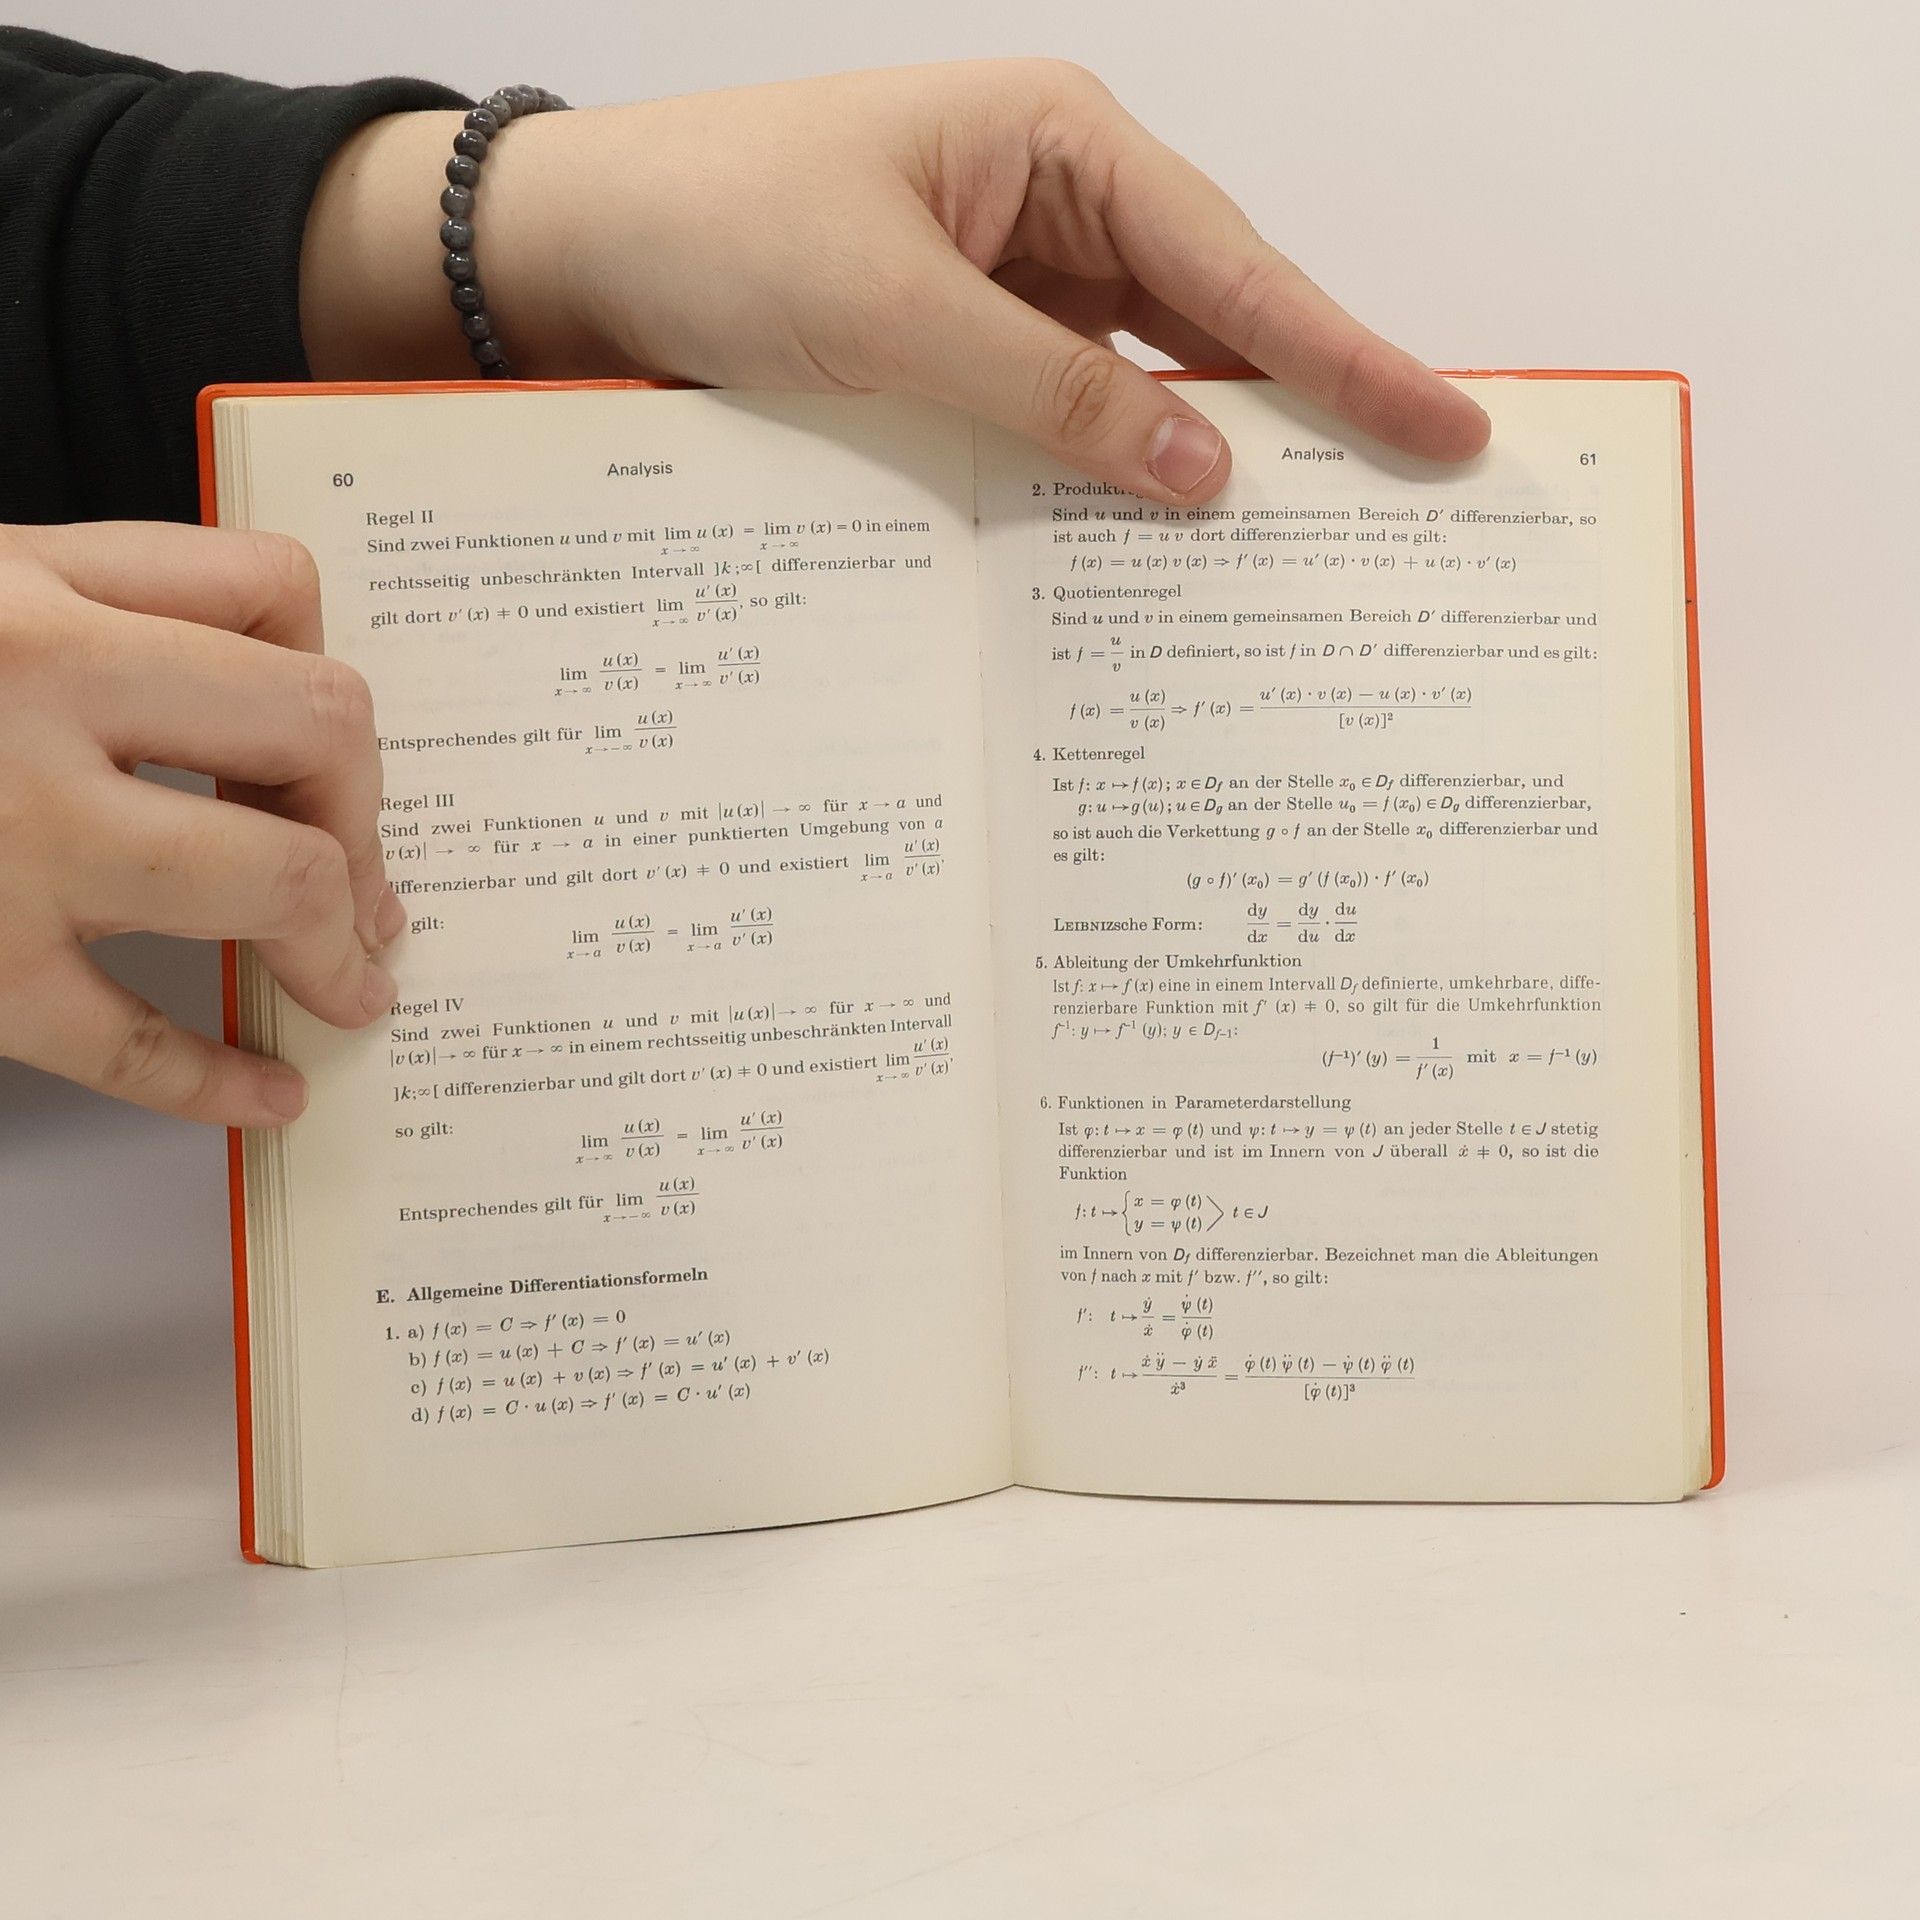 60
Analysis
Regel II
Sind zwei Funktionen u und v mit lim x→∞ u (x) = lim x→∞ v (x) = 0 in einem
rechtsseitig unbeschränkten Intervall ]k;∞[ differenzierbar und
gilt dort v′ (x) ≠ 0 und existiert lim x→∞ u′ (x) / v′ (x), so gilt:
lim x→∞ u (x) / v (x) = lim x→∞ u′ (x) / v′ (x)
Entsprechendes gilt für lim x→−∞ u (x) / v (x)
Regel III
Sind zwei Funktionen u und v mit |u (x)| → ∞ für x → a und
v (x)| → ∞ für x → a in einer punktierten Umgebung von a
ifferenzierbar und gilt dort v′ (x) ≠ 0 und existiert lim x→a u′ (x) / v′ (x),
gilt:
lim x→a u (x) / v (x) = lim x→a u′ (x) / v′ (x)
Regel IV
Sind zwei Funktionen u und v mit |u (x)| → ∞ für x → ∞ und
|v (x)| → ∞ für x → ∞ in einem rechtsseitig unbeschränkten Intervall
]k;∞[ differenzierbar und gilt dort v′ (x) ≠ 0 und existiert lim x→∞ u′ (x) / v′ (x),
so gilt:
lim x→∞ u (x) / v (x) = lim x→∞ u′ (x) / v′ (x)
Entsprechendes gilt für lim x→−∞ u (x) / v (x)
E. Allgemeine Differentiationsformeln
1. a) f (x) = C ⇒ f′ (x) = 0
b) f (x) = u (x) + C ⇒ f′ (x) = u′ (x)
c) f (x) = u (x) + v (x) ⇒ f′ (x) = u′ (x) + v′ (x)
d) f (x) = C · u (x) ⇒ f′ (x) = C · u′ (x)
Analysis
61
2.
Sind u und v in einem gemeinsamen Bereich D′ differenzierbar, so
ist auch f = u v dort differenzierbar und es gilt:
f (x) = u (x) v (x) ⇒ f′ (x) = u′ (x) · v (x) + u (x) · v′ (x)
3. Quotientenregel
Sind u und v in einem gemeinsamen Bereich D′ differenzierbar und
ist f = u / v in D definiert, so ist f in D ∩ D′ differenzierbar und es gilt:
f (x) = u (x) / v (x) ⇒ f′ (x) = u′ (x) · v (x) − u (x) · v′ (x) / [v (x)]²
4. Kettenregel
Ist f: x ↦ f (x); x ∈ Df an der Stelle x₀ ∈ Df differenzierbar, und
g: u ↦ g (u); u ∈ Dg an der Stelle u₀ = f (x₀) ∈ Dg differenzierbar,
so ist auch die Verkettung g ∘ f an der Stelle x₀ differenzierbar und
es gilt:
(g ∘ f)′ (x₀) = g′ (f (x₀)) · f′ (x₀)
LEIBNIZsche Form: dy / dx = dy / du · du / dx
5. Ableitung der Umkehrfunktion
Ist f: x ↦ f (x) eine in einem Intervall Df definierte, umkehrbare, diffe-
renzierbare Funktion mit f′ (x) ≠ 0, so gilt für die Umkehrfunktion
f⁻¹: y ↦ f⁻¹ (y); y ∈ Df−1:
(f⁻¹)′ (y) = 1 / f′ (x) mit x = f⁻¹ (y)
6. Funktionen in Parameterdarstellung
Ist φ: t ↦ x = φ (t) und ψ: t ↦ y = ψ (t) an jeder Stelle t ∈ J stetig
differenzierbar und ist im Innern von J überall ẋ ≠ 0, so ist die
Funktion
f: t ↦ { x = φ (t)
y = ψ (t) ⟩ t ∈ J
im Innern von Df differenzierbar. Bezeichnet man die Ableitungen
von f nach x mit f′ bzw. f′′, so gilt:
f′: t ↦ ẏ / ẋ = ψ̇ (t) / φ̇ (t)
f′′: t ↦ ẋ ÿ − ẏ ẍ / ẋ³ = φ̇ (t) ψ̈ (t) − ψ̇ (t) φ̈ (t) / [φ̇ (t)]³